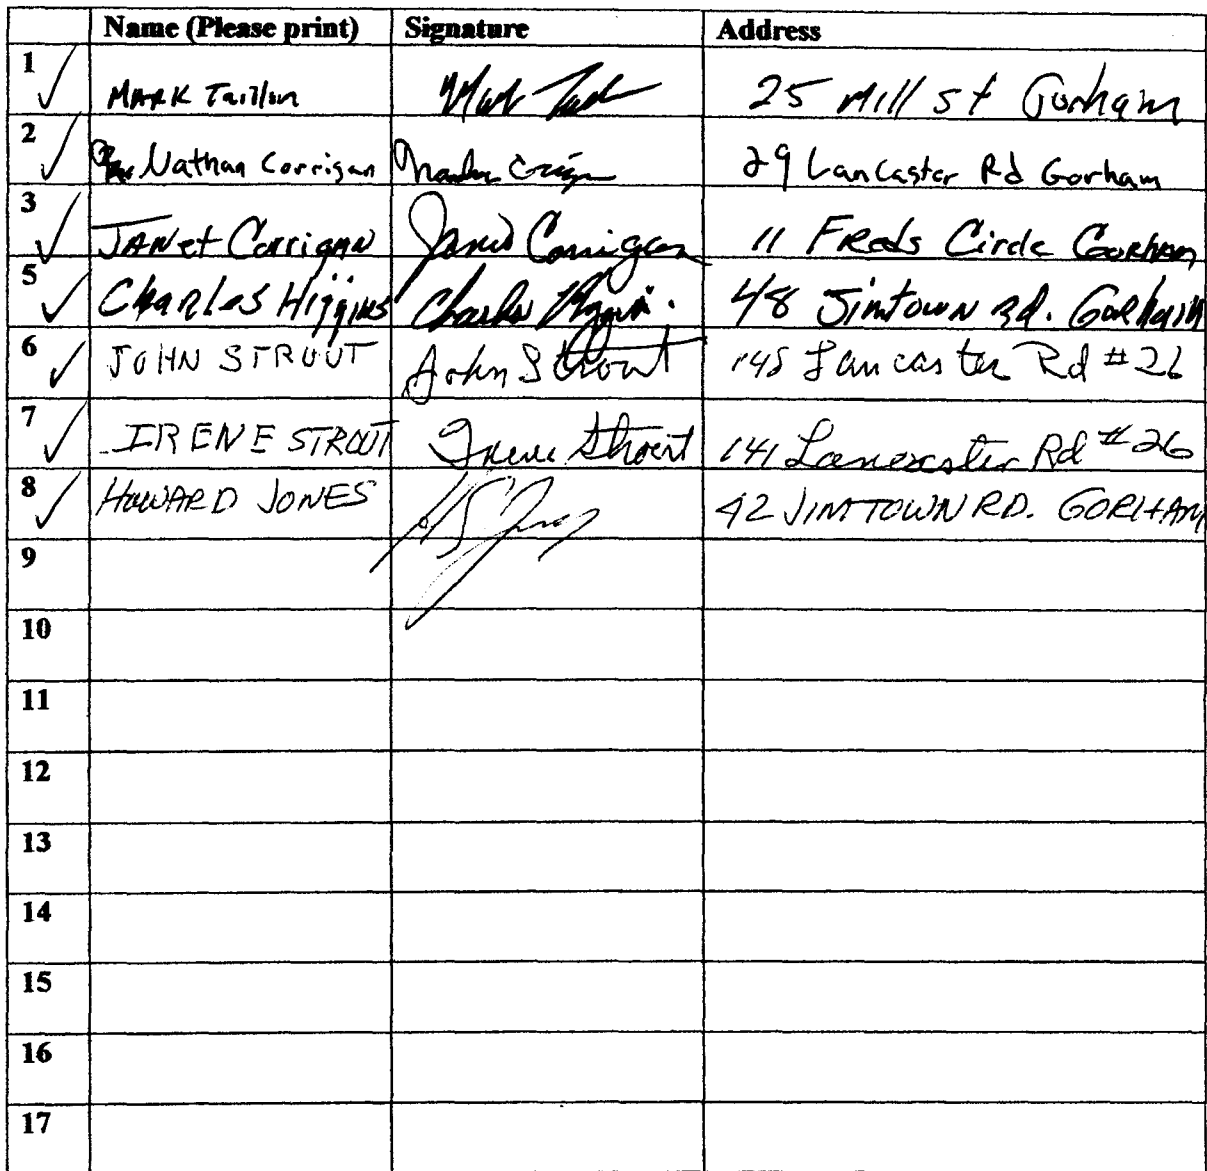 Name (Please print) Signature Address
1 ✓ MARK Taillon Mark 25 Mill st Gorham
2 ✓ Nathan Corrigan Nathan 29 Lancaster Rd Gorham
3 ✓ JANet Corrigan Janet Corrigan 11 Freds Circle Gorham
5 ✓ Charles Higgins Charles Higgins 48 Jimtown Rd. Gorham
6 ✓ JOHN STROUT John Strout 145 Lancaster Rd #26
7 ✓ IRENE STROUT Irene Strout 141 Lancaster Rd #26
8 ✓ HOWARD JONES 42 JIMTOWN RD. GORHAM
9
10
11
12
13
14
15
16
17